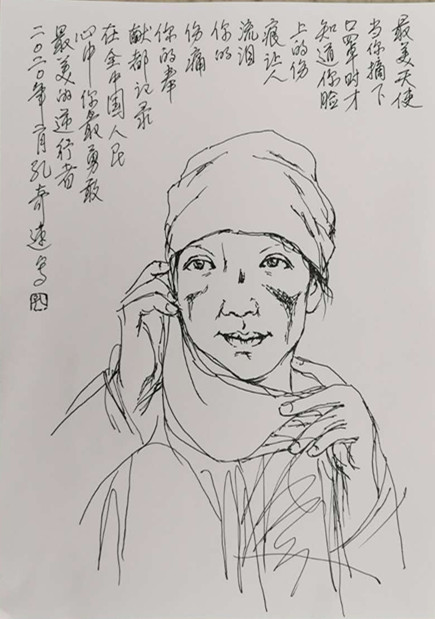 最美天使
当你摘下
口罩时才
知道你脸
上的伤
痕让人
流泪
你的
伤痛
你的奉
献都记录
在全中国人民
心中你最勇敢
最美的逆行者
二〇二〇年二月孔奇速写